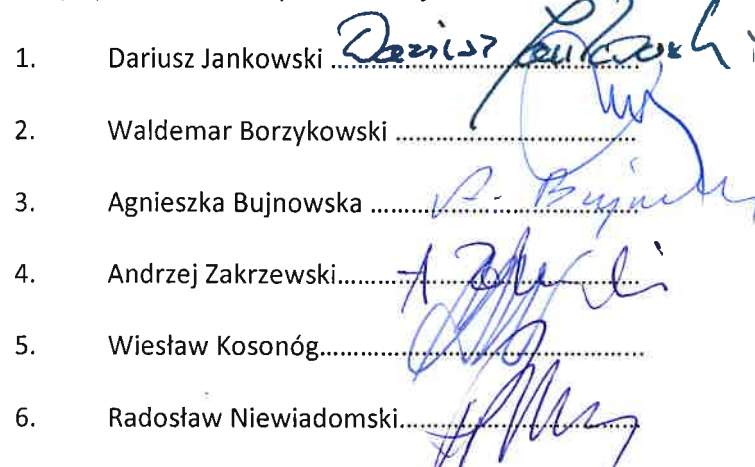 1. Dariusz Jankowski ........ Dariusz Jankowski
2. Waldemar Borzykowski ........
3. Agnieszka Bujnowska ........ A. Bujnow
4. Andrzej Zakrzewski ........ A
5. Wiesław Kosonóg ........
6. Radosław Niewiadomski ........